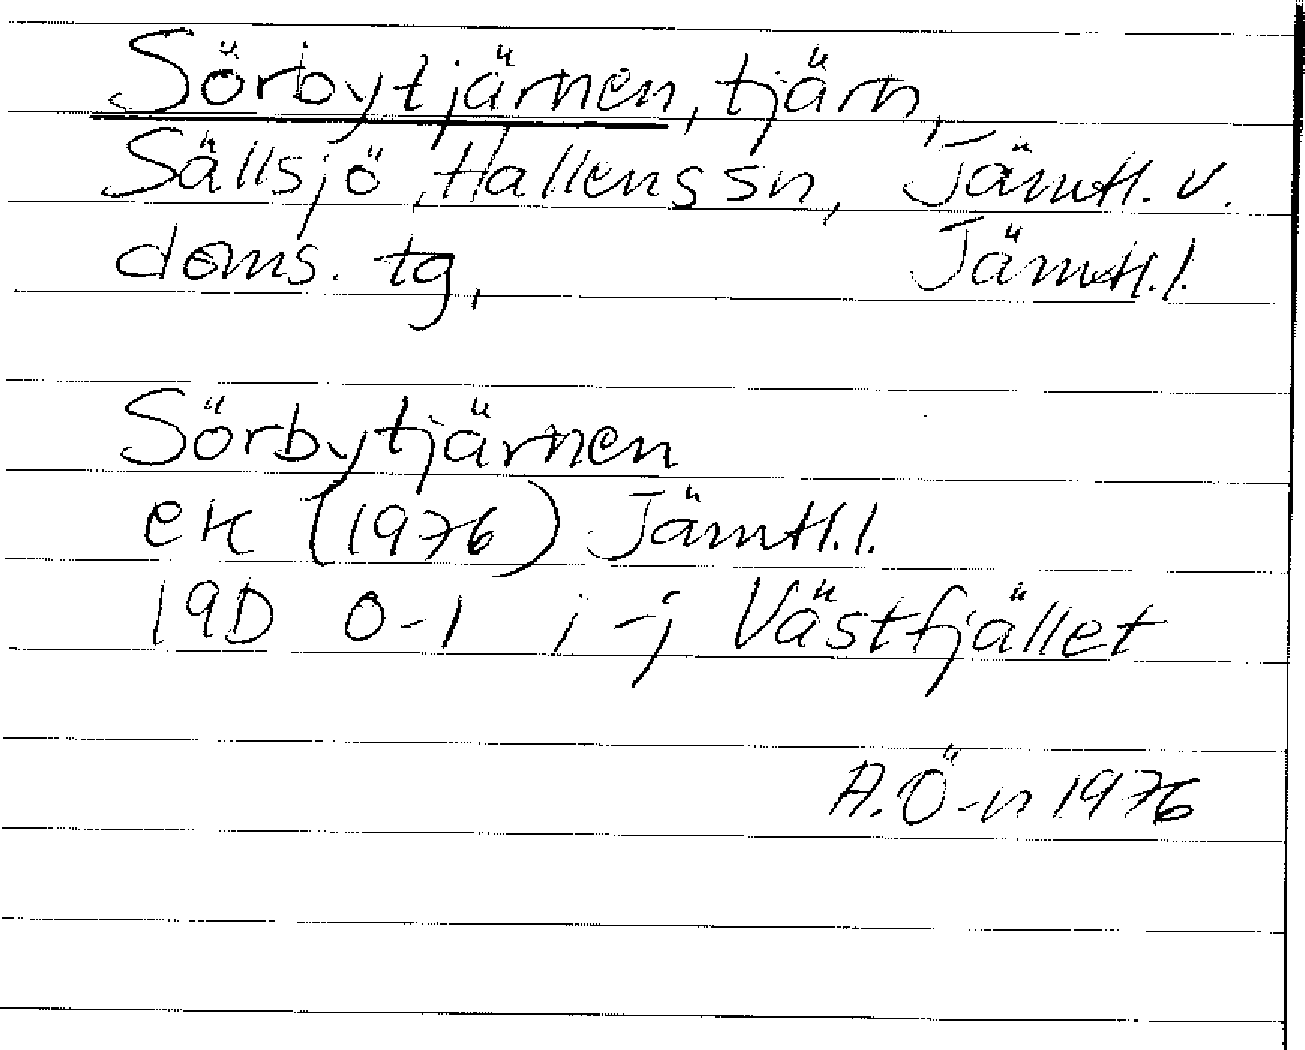 Sörbytjärnen, tjärn,
Sällsjö, Hallens sn, Jämtl. v.
doms. tg, Jämtl. l.
Sörbytjärnen
ek (1976) Jämtl. l.
19D 0-1 i-j Västfjället
A. Ö-n 1976